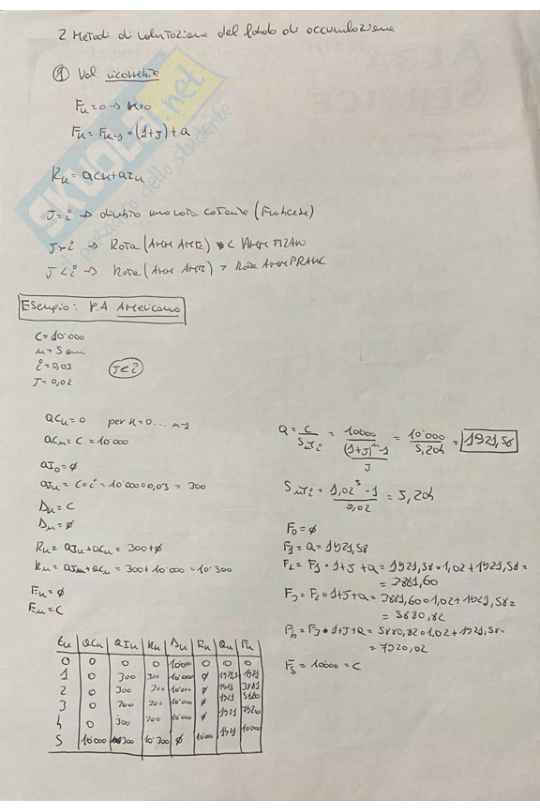 2 Metodi di valutazione del fondo di accumulazione
① Val ricorrente
F₀ = 0 → k=0
Fₖ = Fₖ₋₁ * (1+J) + a
Rₖ = aCₖ + aIₖ
J=i → diventa una rata costante (Francese)
J>i → Rata (Amm Amer) < 
J<i → Rata (Amm Amer) > Rata Amm FRANC
Esempio: P.A Americano
C= 10'000
n= 5 anni
i= 0,03
J= 0,02
J<i
aCₖ=0 per k=0... n-1
aCₙ= C = 10'000
aI₀=ø
aIₖ= C*i = 10'000*0,03 = 300
Dₖ= C
Dₙ= ø
Rₖ= aIₖ+aCₖ = 300+ø
Rₙ= aIₙ+aCₙ = 300+10'000 = 10'300
Eₖ=ø
Eₙ=C
a = C / Sₙ̅J = 10000 / ((1+J)ⁿ-1 / J) = 10'000 / 5,204 = 1921,58
= 1,02⁵-1 / 0,02 = 5,204
F₀=ø
F₁= a= 1921,58
F₂= F₁*1+J+a= 1921,58*1,02+1921,58=
= 3881,60
F₃= F₂*1+J+a= 3881,60*1,02+1921,58=
= 5880,82
F₄= F₃*1+J+a= 5880,82*1,02+1921,58=
= 7920,02
F₅= 10000= C
tₖ aCₖ aIₖ Rₖ Dₖ Eₖ aₖ Fₖ
0 0 0 0 10'000 0 0 0
1 0 300 300 10'000 ø 1921 1921
2 0 300 300 10'000 ø 1921 3881
3 0 300 300 10'000 ø 1921 5880
4 0 300 300 10'000 ø 1921 7920
5 10'000 300 10'300 ø 10'000 1921 10'000
SKUOLA.net